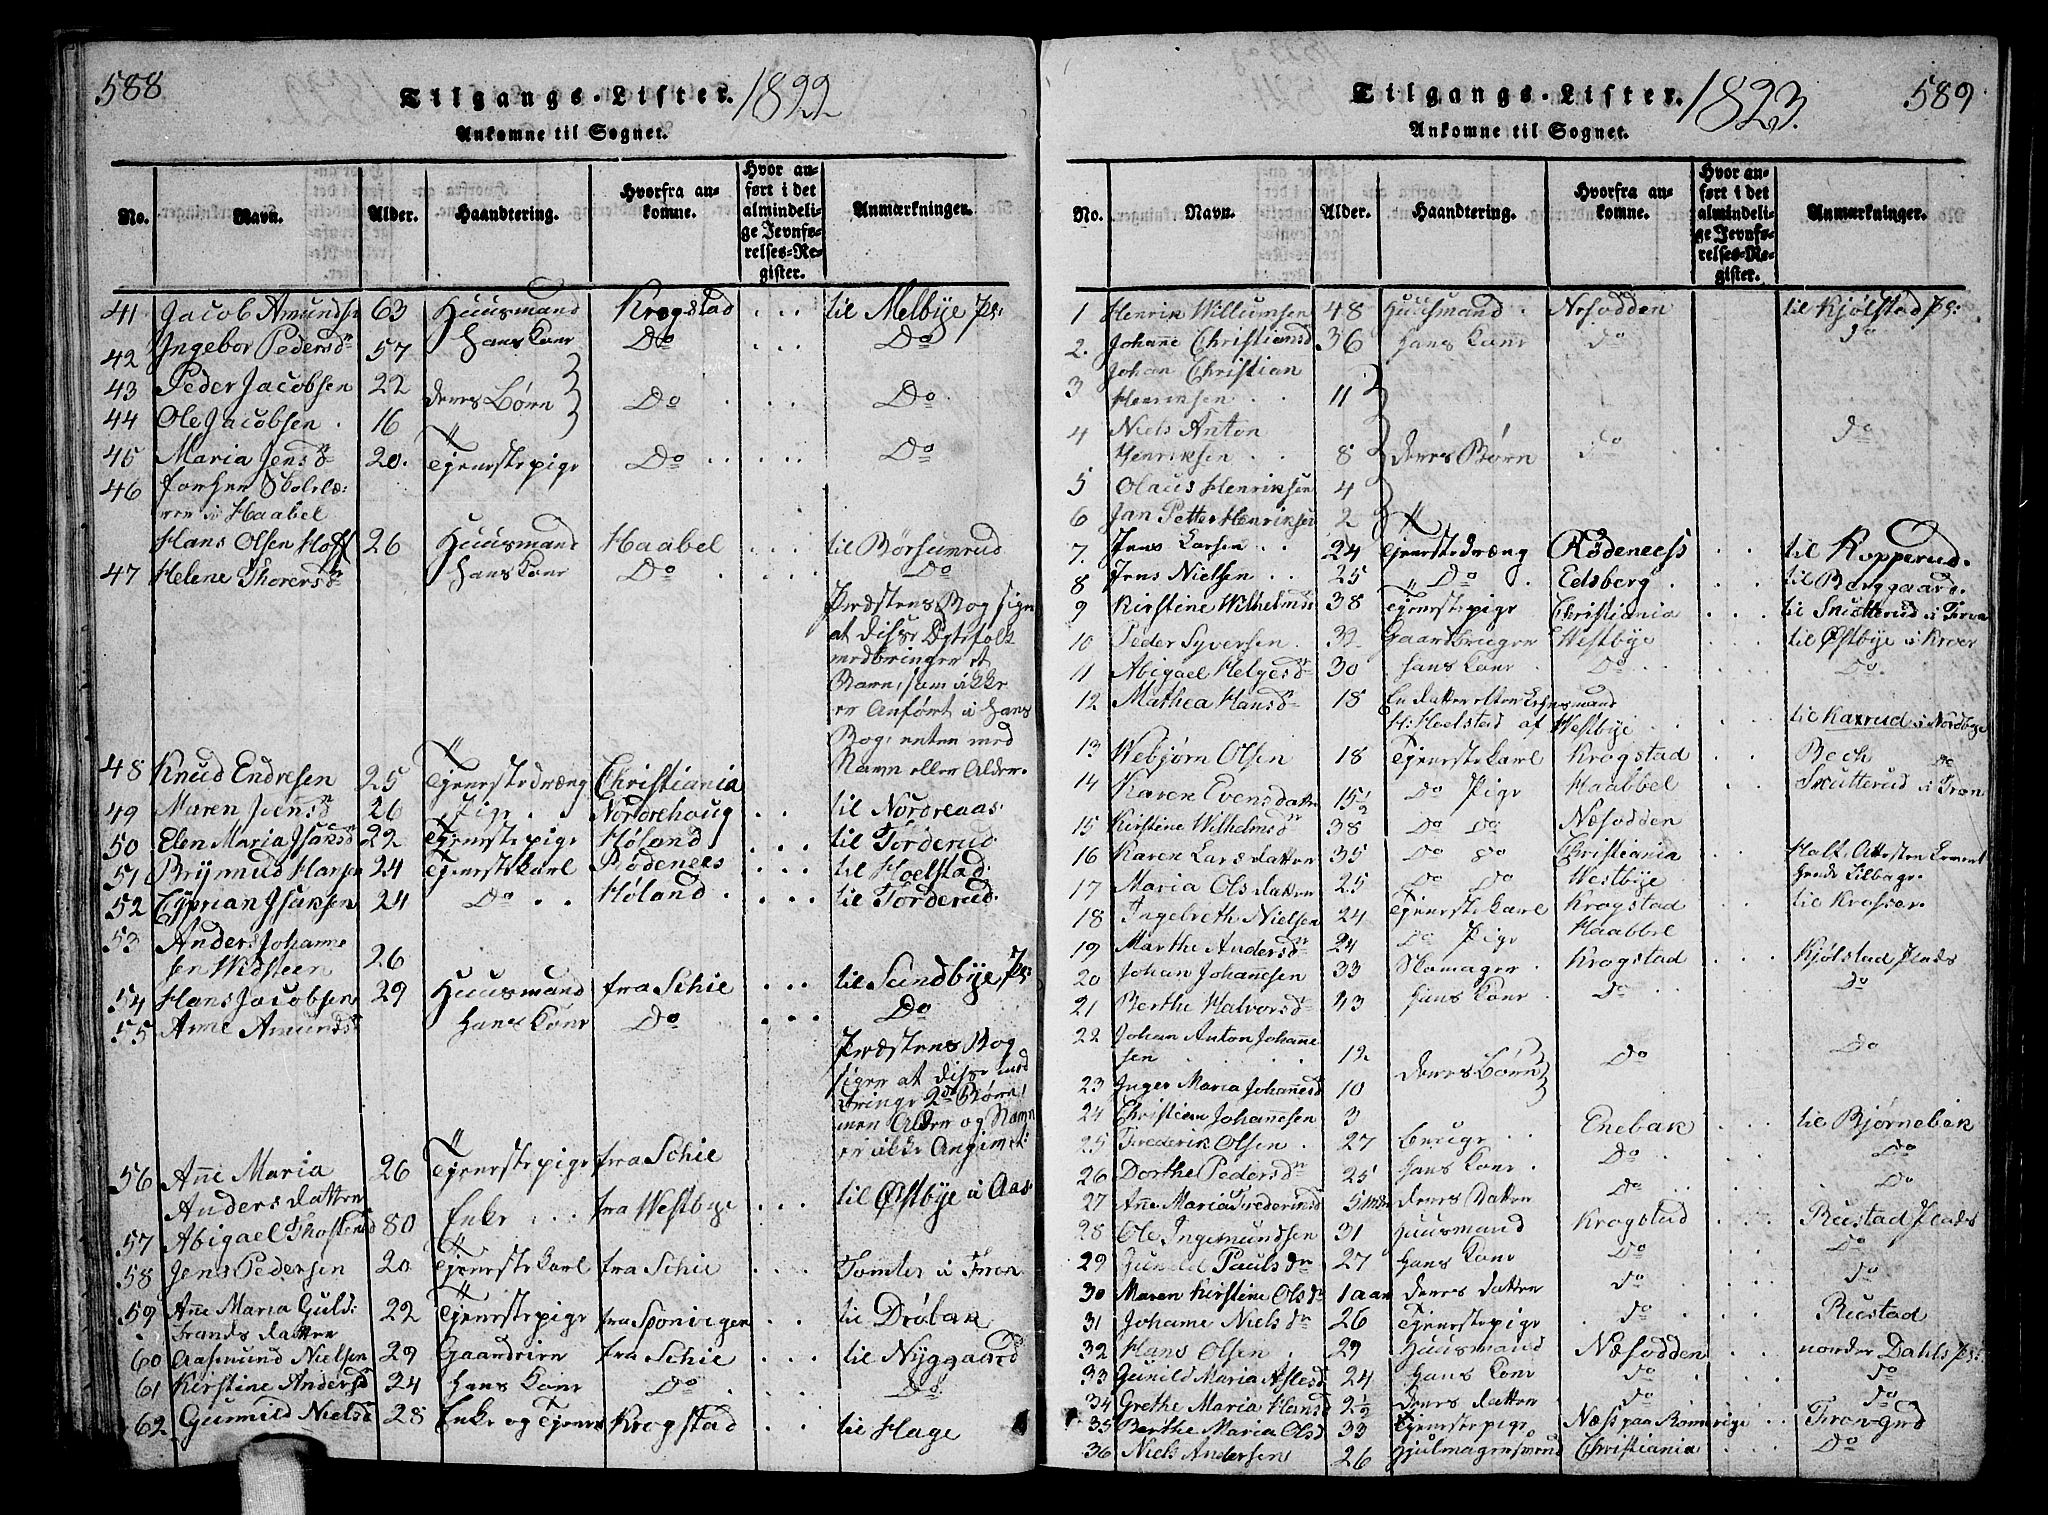 588
Tilgangs-Lister. 1822
Ankomne til Sognet.
No. Navn. Alder. Haandtering. Hvorfra ankomne. Hvor anført i det almindelige Jevnførelses-Register. Anmærkninger.
41 Jacob Amundsen 63 Huusmand Krogstad til Melbye Ps:
42 Ingebor Pedersdr 57 Hans Kone Do Do
43 Peder Jacobsen 22 deres Børn Do Do
44 Ole Jacobsen 16
45 Maria Jensdr 20 Tjenestepige Do Do
46 forhen Skolelæ:
rer i Haabel
Hans Olsen Hoff 26 Huusmand Haabel til Børsumrud
47 Helene Thoresdr Hans Kone Do Do
Præstens Bog siger
at disse Egtefolk
medbringer et
Barn, som ikke
er Anført i hans
Bog, enten med
Navn eller Alder.
48 Knud Endresen 25 Tjenestedræng Christiania
49 Maren Jensdr 26 Pige Nordrehoug til Nordreaas
50 Elen Maria Isaksdr 22 Tjenestepige Høland til Torderud
51 Brymud Hansen 24 Tjenestekarl Rødenees til Hoelstad
52 Cyprian Isaksen 24 Do Høland til Torderud
53 Anders Johanne
sen Widsteen 26
54 Hans Jacobsen 29 Huusmand fra Schie til Sundbye Ps:
55 Anne Amundsdr Hans Kone Do Do
Præstens Bog
siger at disse med
bringe 2de Børn,
men Alder og Navn
er ikke Angivet:
56 Anne Maria 26 Tjenestepige fra Schie
Anders datter Enke fra Westbye til Østbye i Aas
57 Abigael Thostensd 80
58 Jens Pedersen 20 Tjenestekarl fra Schie Tomter i Fron
59 Anne Maria Guld: 22 Tjenestepige fra til Drøbak
brands datter
60 Aasmund Nielsen 29 Gaardeier fra Schie til Nyggaard
61 Kirstine Andersd 24 Hans Kone Do Do
62 Gunnild Nielsd 28 Enke og Tjenes Krogstad til Hage
Tilgangs-Lister. 1823. 589
Ankomne til Sognet.
No. Navn. Alder. Haandtering. Hvorfra ankomne. Hvor anført i det almindelige Jevnførelses-Register. Anmærkninger.
1 Henrik Willumsen 48 Huusmand Nesodden til Kjølstad Ps:
2. Johane Christiansd 36 Hans Kone do do
3 Johan Christian
Henriksen 11
4 Niels Anton do
Henriksen 8 deres Børn do
5 Olaus Henriksen 4
6 Jan Petter Henriksen 2
7. Jens Larsen 24 Tjenestedræng Rødeneess til Kopperud.
8 Jens Nielsen 25 Do Edsberg til Borggaard.
9 Kirstine Wilhelmsd 38 Tjenestepige Christiania til Skutterud i Fron
10 Peder Syversen 32 Gaardbruger Westbye til Østbye i Kroer
11 Abigael Helgesdr 30 Hans Kone Do Do
12 Mathea Hansdr 18 En datter
H: Hoelstad af Westbye til Kaxrud i Nordbye
13 Webjørn Olsen 18 Tjenestekarl Krogstad Bech
14 Karen Evensdatter 15½ Do Pige Haabbel Skutterud i Fron
15 Kirstine Wilhelmsdr 38 Do Do Næsodden
16 Karen Larsdatter 35 Do do Christiania
17 Maria Olsdatter 25 Do Do Westbye
18 Ingebreth Nielsen 24 Tjenestekarl Krogstad til Krosser.
19 Marthe Andersdr 24 Do Pige Haabbel
20 Johan Johanesen 33 Skomager Krogstad Kjølstad Plads
21 Berthe Halvorsdr 43 Hans Kone Do do
22 Johan Anton Johanne
sen 12 deres Børn Do Do
23 Inger Maria Johanesd 10
24 Christian Johanesen 3
25 Frederik Olsen 27 Enebak til Bjørnebek
26 Dorthe Pedersdr 25 Hans Kone Do Do
27 Anne Maria Frederiksd 5 mdr deres Datter Do Do
28 Ole Ingemundsen 31 Huusmand Krogstad Rustad Plads
29 Gunild Paulsdr 27 Hans Kone Do Do
30 Maren Kirstine Olsdr 1 aar deres datter do do
31 Johanne Nielsdr 26 Tjenestepige do Rustad
32. Hans Olsen 29 Huusmand Næsodden norder Dahls Ps:
33 Gunild Maria Aslesd 24 Hans Kone do do
34 Grethe Maria Hansd 2½ deres datter do do
35 Berthe Maria Olsd 33 Tjenestepige Næss paa Romerige Fron-Grd
36 Niels Andersen 26 Hjulmagersvend Christiania Do